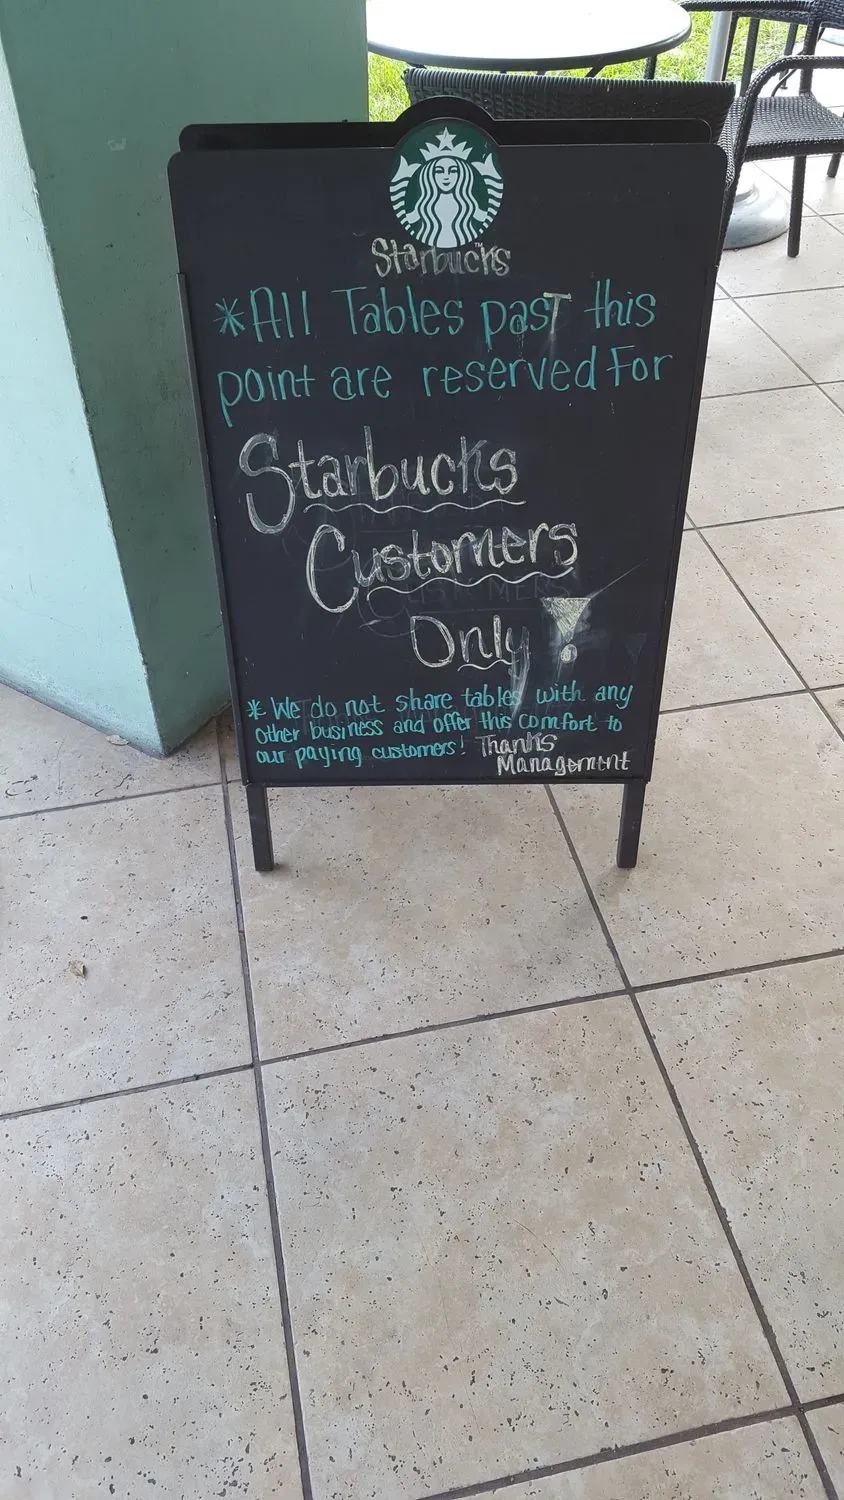 Starbucks™
*All Tables past this
point are reserved For
Starbucks
Customers
Only!
* We do not share tables with any
other business and offer this comfort to
our paying customers! Thanks
Management